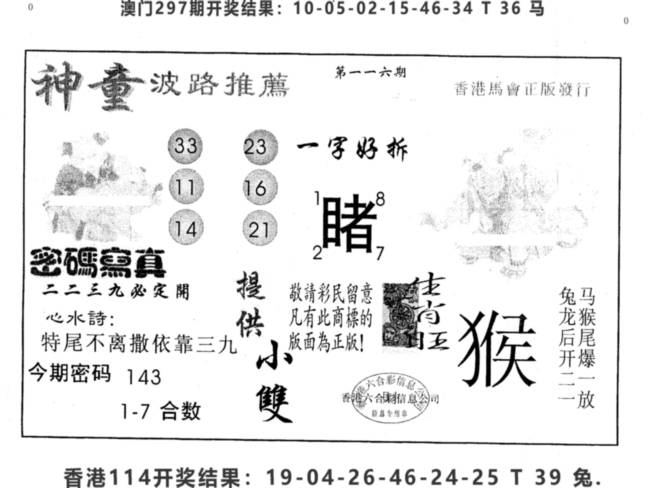 澳门297期开奖结果：10-05-02-15-46-34 T 36 马
0
0
神童 波路推薦
第一一六期
香港馬會正版發行
33 23
11 16
14 21
一字好拆
1 8
睹
2 7
密碼寫真
二二三九必定開
心水詩:
特尾不离撒依靠三九
今期密码 143
1-7 合数
提供
小雙
敬請彩民留意
凡有此商標的
版面為正版!
生肖旺
猴
马猴尾爆一放
兔龙后开二一
香港六合彩信息公司
香港114开奖结果：19-04-26-46-24-25 T 39 兔.